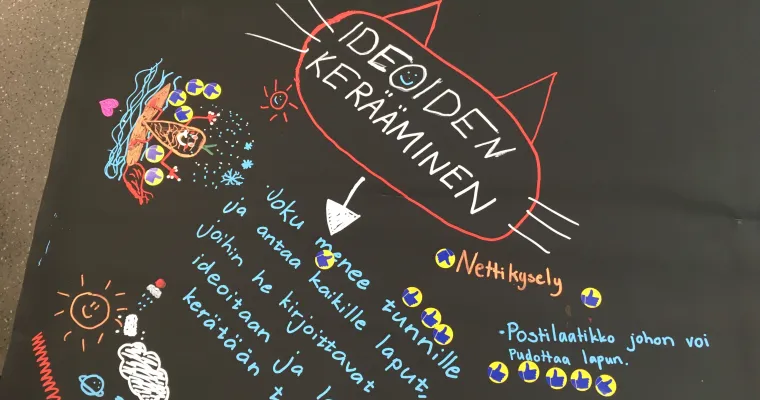 IDEOIDEN
KERÄÄMINEN
Joku menee tunnille
ja antaa kaikille laput,
joihin he kirjoittavat
ideoitaan ja
kerätään
Nettikysely
-Postilaatikko johon voi
Pudottaa lapun.